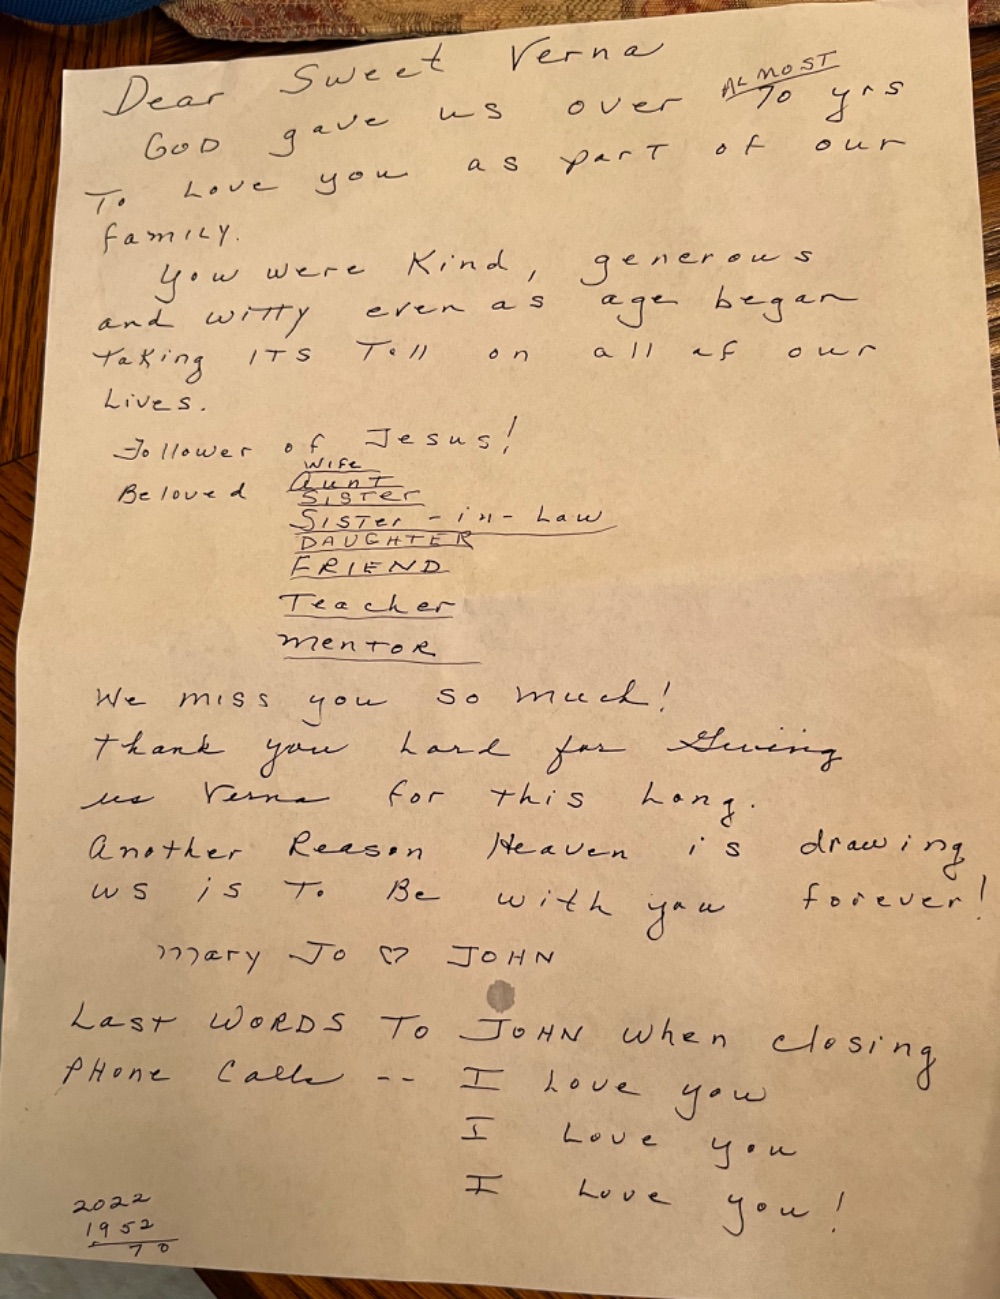 Dear Sweet Verna
GOD gave us over ALMOST 70 yrs
To Love you as part of our
family.
You were Kind, generous
and witty even as age began
taking ITS Toll on all of our
Lives.
Follower of Jesus!
Wife
Beloved Aunt
Sister
Sister-in-Law
DAUGHTER
FRIEND
Teacher
mentor
We miss you so much!
thank you Lord for Giving
us Verna for this Long.
Another Reason Heaven is drawing
us is To Be with you forever!
Mary Jo ♡ JOHN
Last WORDS TO JOHN when closing
PHone Calls -- I Love you
I Love you
I Love you!
2022
1952
70